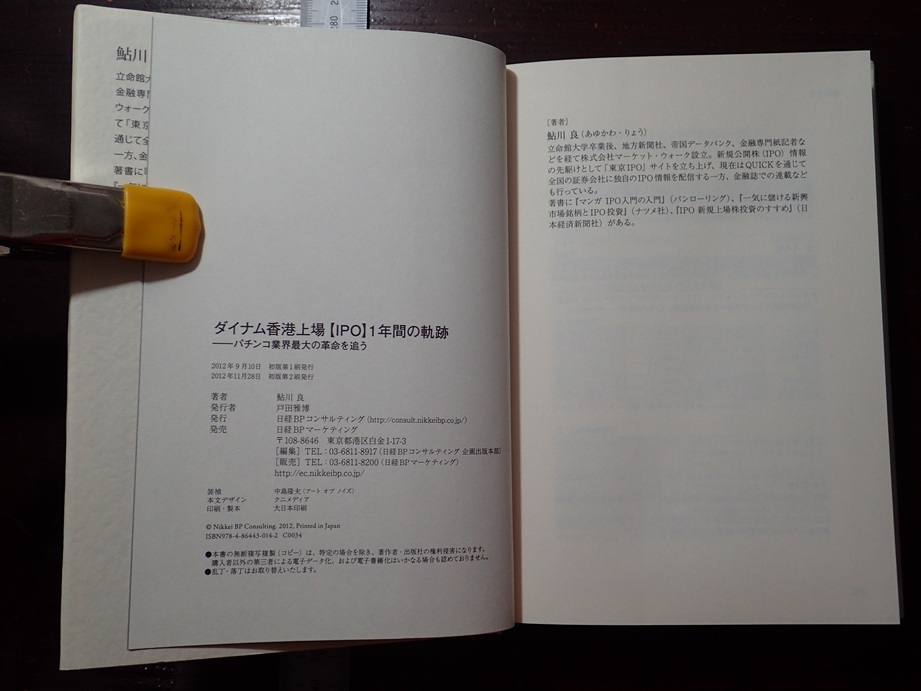 280
鮎川
立命館大
金融専
ウォーク
て「東京
通じて全
一方、金
著書に
ダイナム香港上場【IPO】1年間の軌跡
――パチンコ業界最大の革命を追う
2012年9月10日 初版第1刷発行
2012年11月28日 初版第2刷発行
著者 鮎川 良
発行者 戸田雅博
発行 日経BPコンサルティング(http://consult.nikkeibp.co.jp/)
発売 日経BPマーケティング
〒108-8646 東京都港区白金1-17-3
[編集]TEL:03-6811-8917(日経BPコンサルティング 企画出版本部)
[販売]TEL:03-6811-8200(日経BPマーケティング)
http://ec.nikkeibp.co.jp/
装幀 中島隆夫(アート オブ ノイズ)
本文デザイン クニメディア
印刷・製本 大日本印刷
© Nikkei BP Consulting. 2012, Printed in Japan
ISBN978-4-86443-014-2 C0034
●本書の無断複写複製(コピー)は、特定の場合を除き、著作者・出版社の権利侵害になります。
購入者以外の第三者による電子データ化、および電子書籍化はいかなる場合も認めておりません。
●乱丁・落丁はお取り替えいたします。
[著者]
鮎川 良(あゆかわ・りょう)
立命館大学卒業後、地方新聞社、帝国データバンク、金融専門紙記者な
どを経て株式会社マーケット・ウォーク設立。新規公開株(IPO)情報
の先駆けとして「東京IPO」サイトを立ち上げ、現在はQUICKを通じて
全国の証券会社に独自のIPO情報を配信する一方、金融誌での連載なども
行っている。
著書に『マンガ IPO入門の入門』(パンローリング)、『一気に儲ける新興
市場銘柄とIPO投資』(ナツメ社)、『IPO 新規上場株投資のすすめ』(日
本経済新聞社)がある。